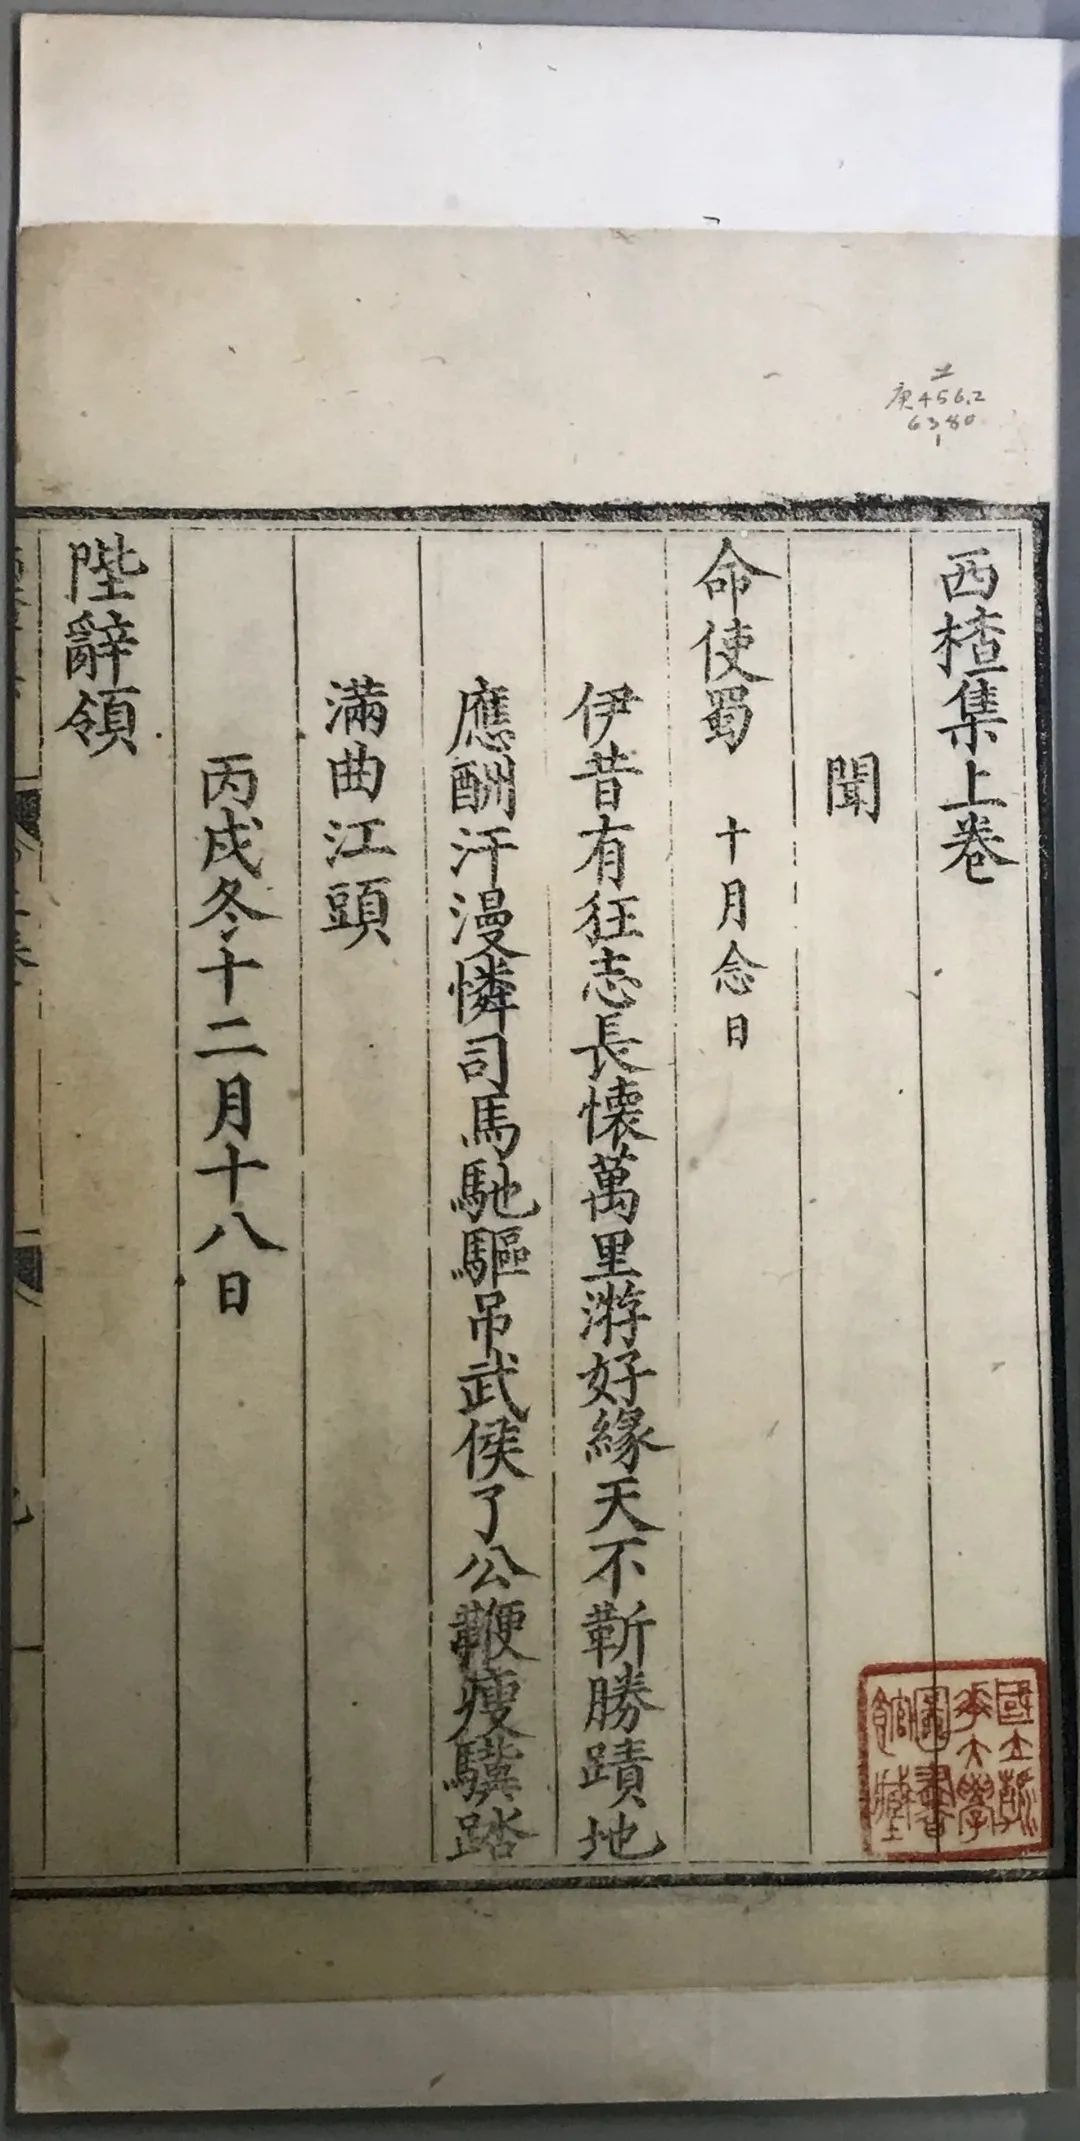 西楂集上卷
聞
命使蜀 十月念日
伊昔有狂志長懷萬里游好緣天不靳勝蹟地
應酬汗漫憐司馬馳驅吊武侯了公鞭瘦驥踏
滿曲江頭
丙戌冬十二月十八日
陛辭領
庚456.2
6380
1
國立清
華大學
圖書
館藏